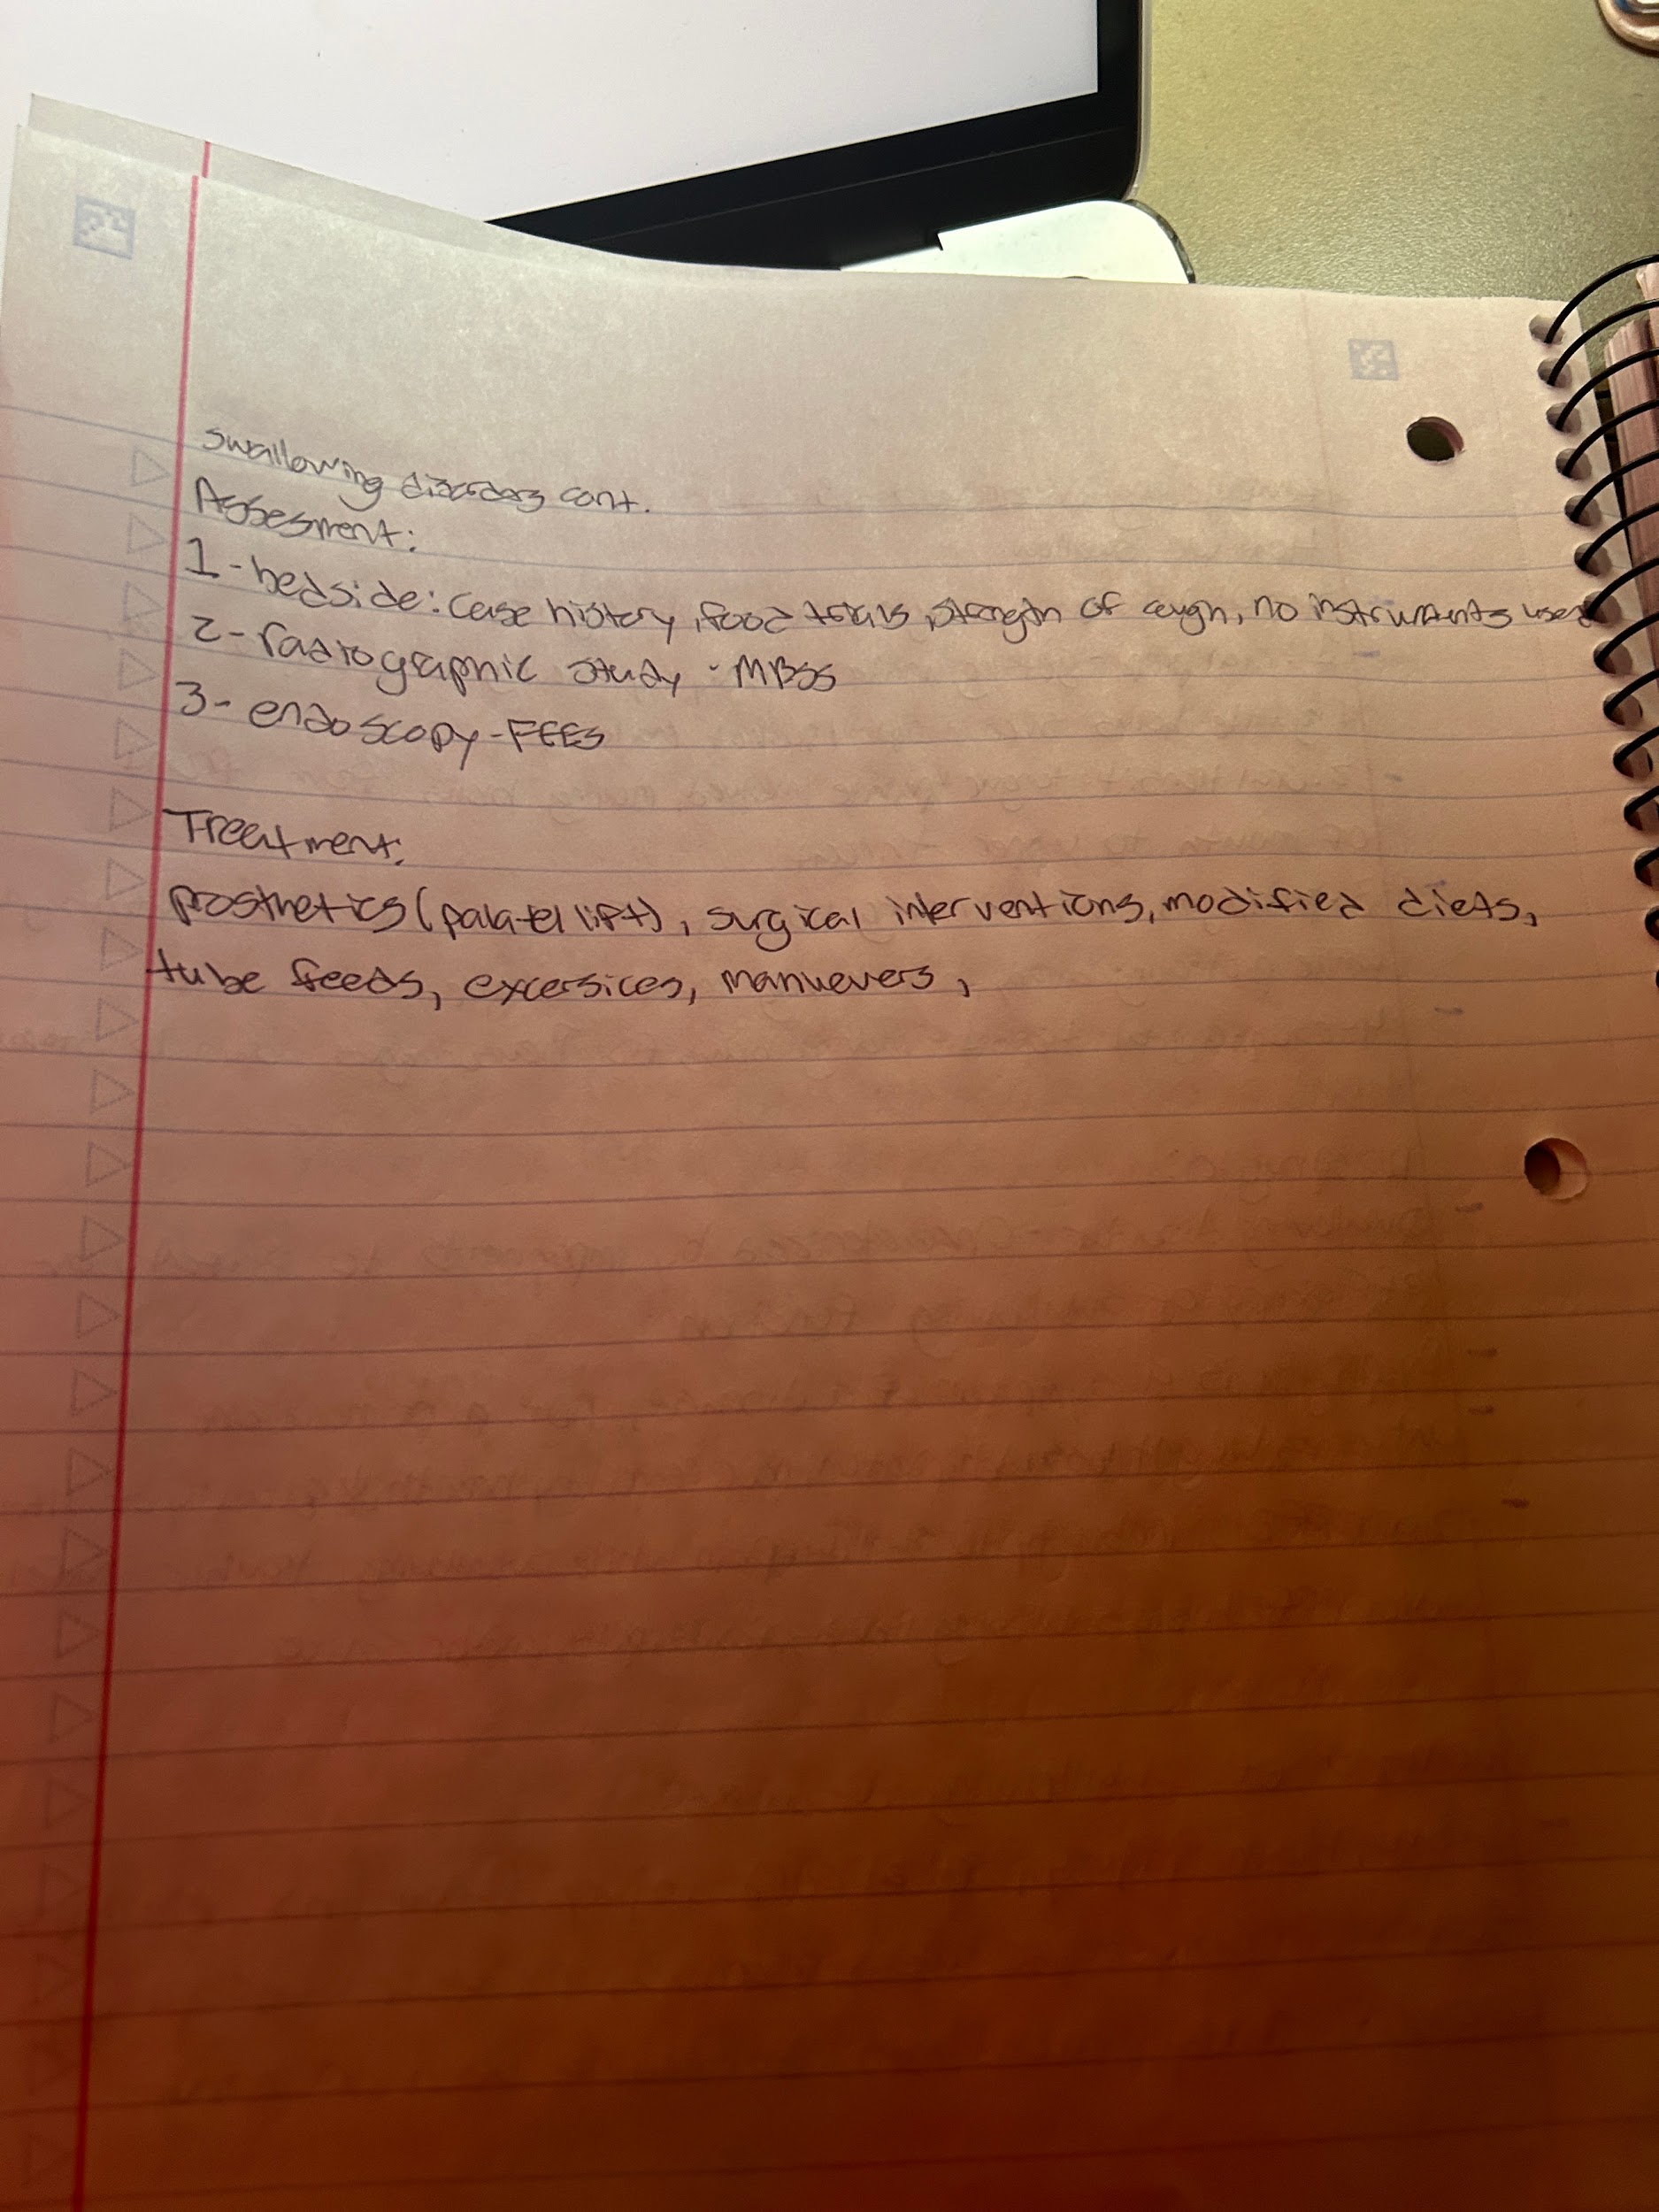 swallowing disorders cont.
Assesment:
1-bedside: Case history, food trials, strength of cough, no instruments used
2-radiographic study - MBSS
3- endoscopy-FEES
Treatment:
prosthetics (palatel lift), surgical interventions, modified diets,
tube feeds, excersices, manuevers,